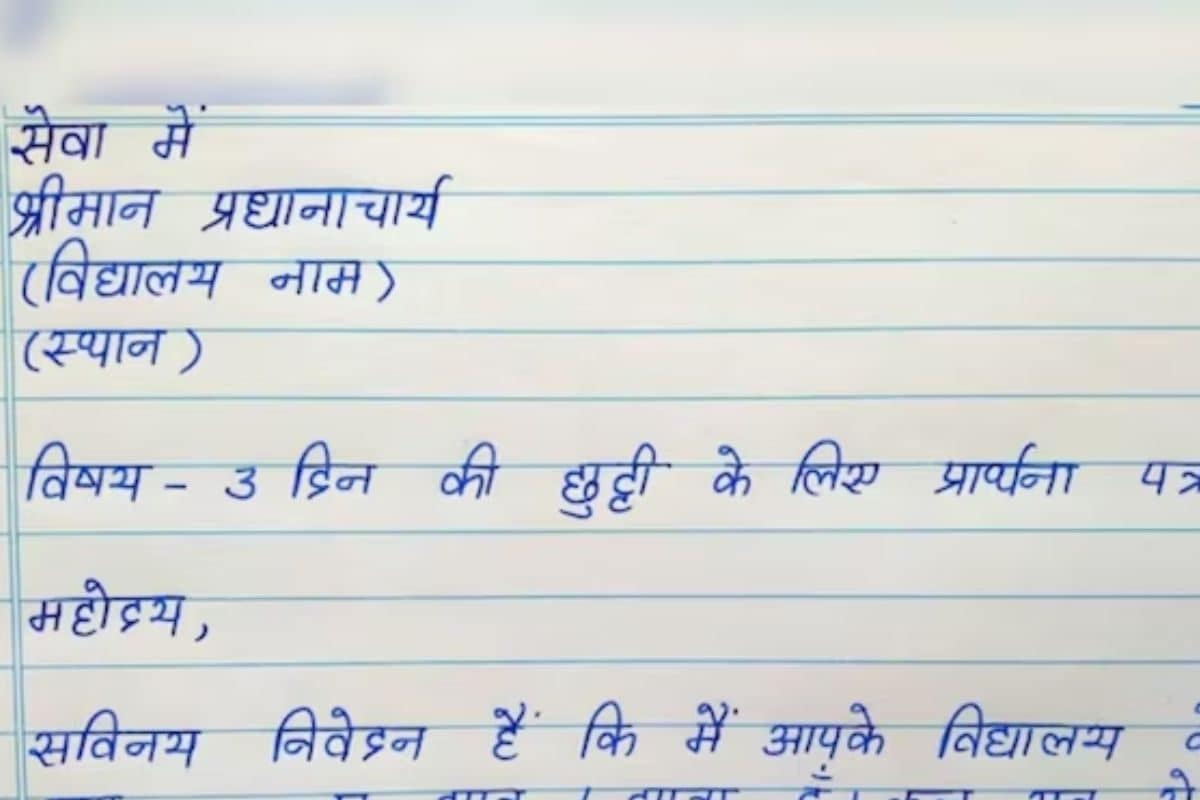 सेवा में
श्रीमान प्रधानाचार्य
(विद्यालय नाम)
(स्थान)
विषय - 3 दिन की छुट्टी के लिए प्रार्थना पत्र
महोदय,
सविनय निवेदन हैं कि मैं आपके विद्यालय